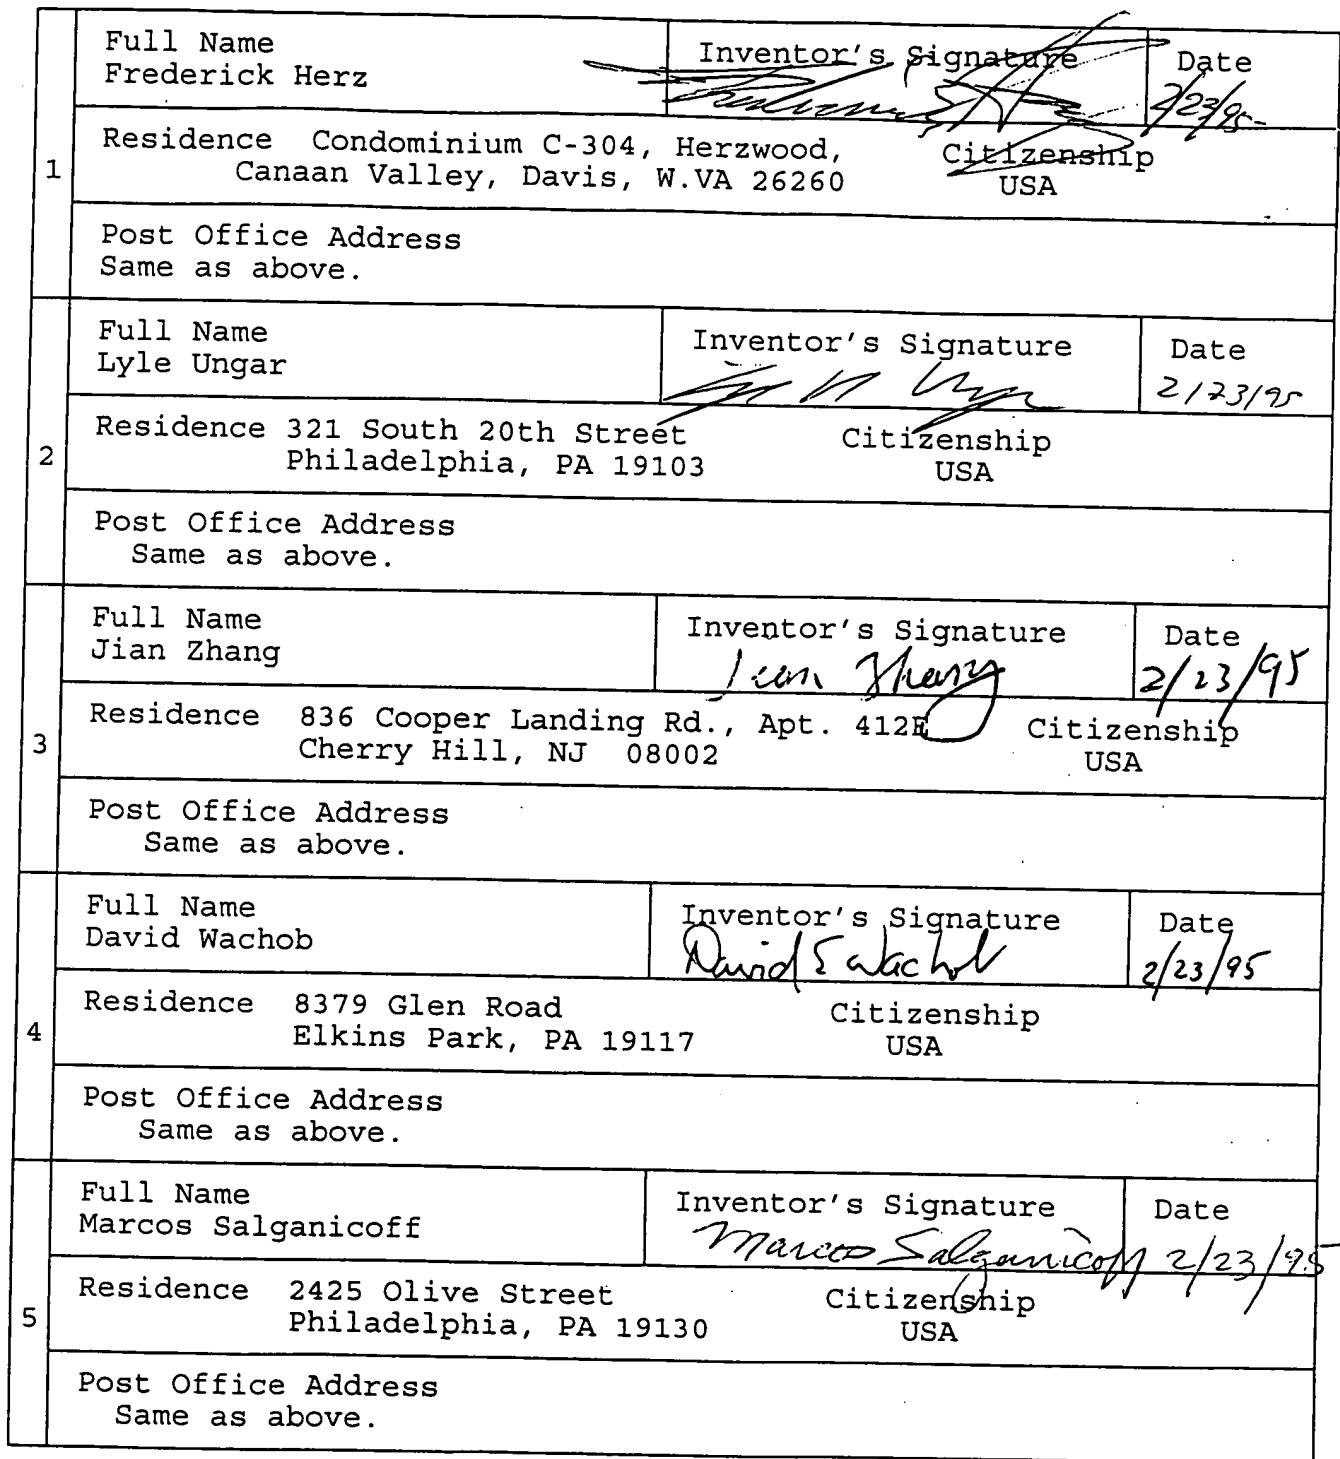 Full Name
Frederick Herz
Inventor's Signature
Date
2/23/95
1
Residence Condominium C-304, Herzwood,
Canaan Valley, Davis, W.VA 26260
Citizenship
USA
Post Office Address
Same as above.
Full Name
Lyle Ungar
Inventor's Signature
Date
2/23/95
2
Residence 321 South 20th Street
Philadelphia, PA 19103
Citizenship
USA
Post Office Address
Same as above.
Full Name
Jian Zhang
Inventor's Signature
Jian Zhang
Date
2/23/95
3
Residence 836 Cooper Landing Rd., Apt. 412E
Cherry Hill, NJ 08002
Citizenship
USA
Post Office Address
Same as above.
Full Name
David Wachob
Inventor's Signature
David E Wachob
Date
2/23/95
4
Residence 8379 Glen Road
Elkins Park, PA 19117
Citizenship
USA
Post Office Address
Same as above.
Full Name
Marcos Salganicoff
Inventor's Signature
Marcos Salganicoff
Date
2/23/95
5
Residence 2425 Olive Street
Philadelphia, PA 19130
Citizenship
USA
Post Office Address
Same as above.